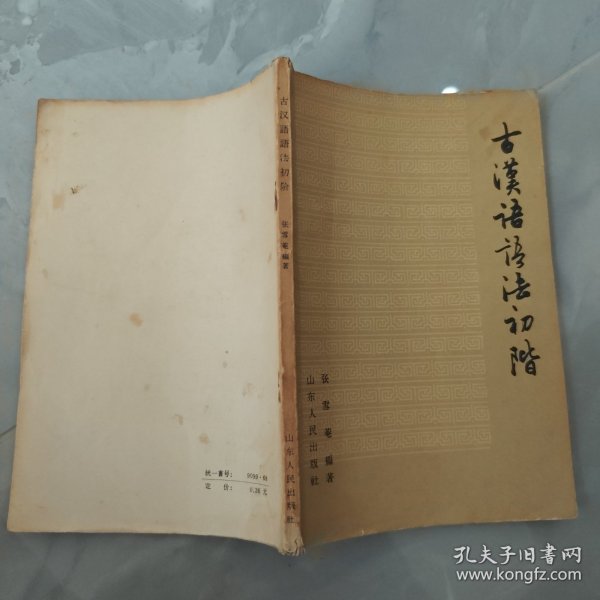 古漢语语法初階
张雪菴编著
山东人民出版社
古汉语语法初阶
张雪菴编著
山东人民出版社
统一書号：9099·61
定 价：0.36元
孔夫子旧书网
www.kongfz.com